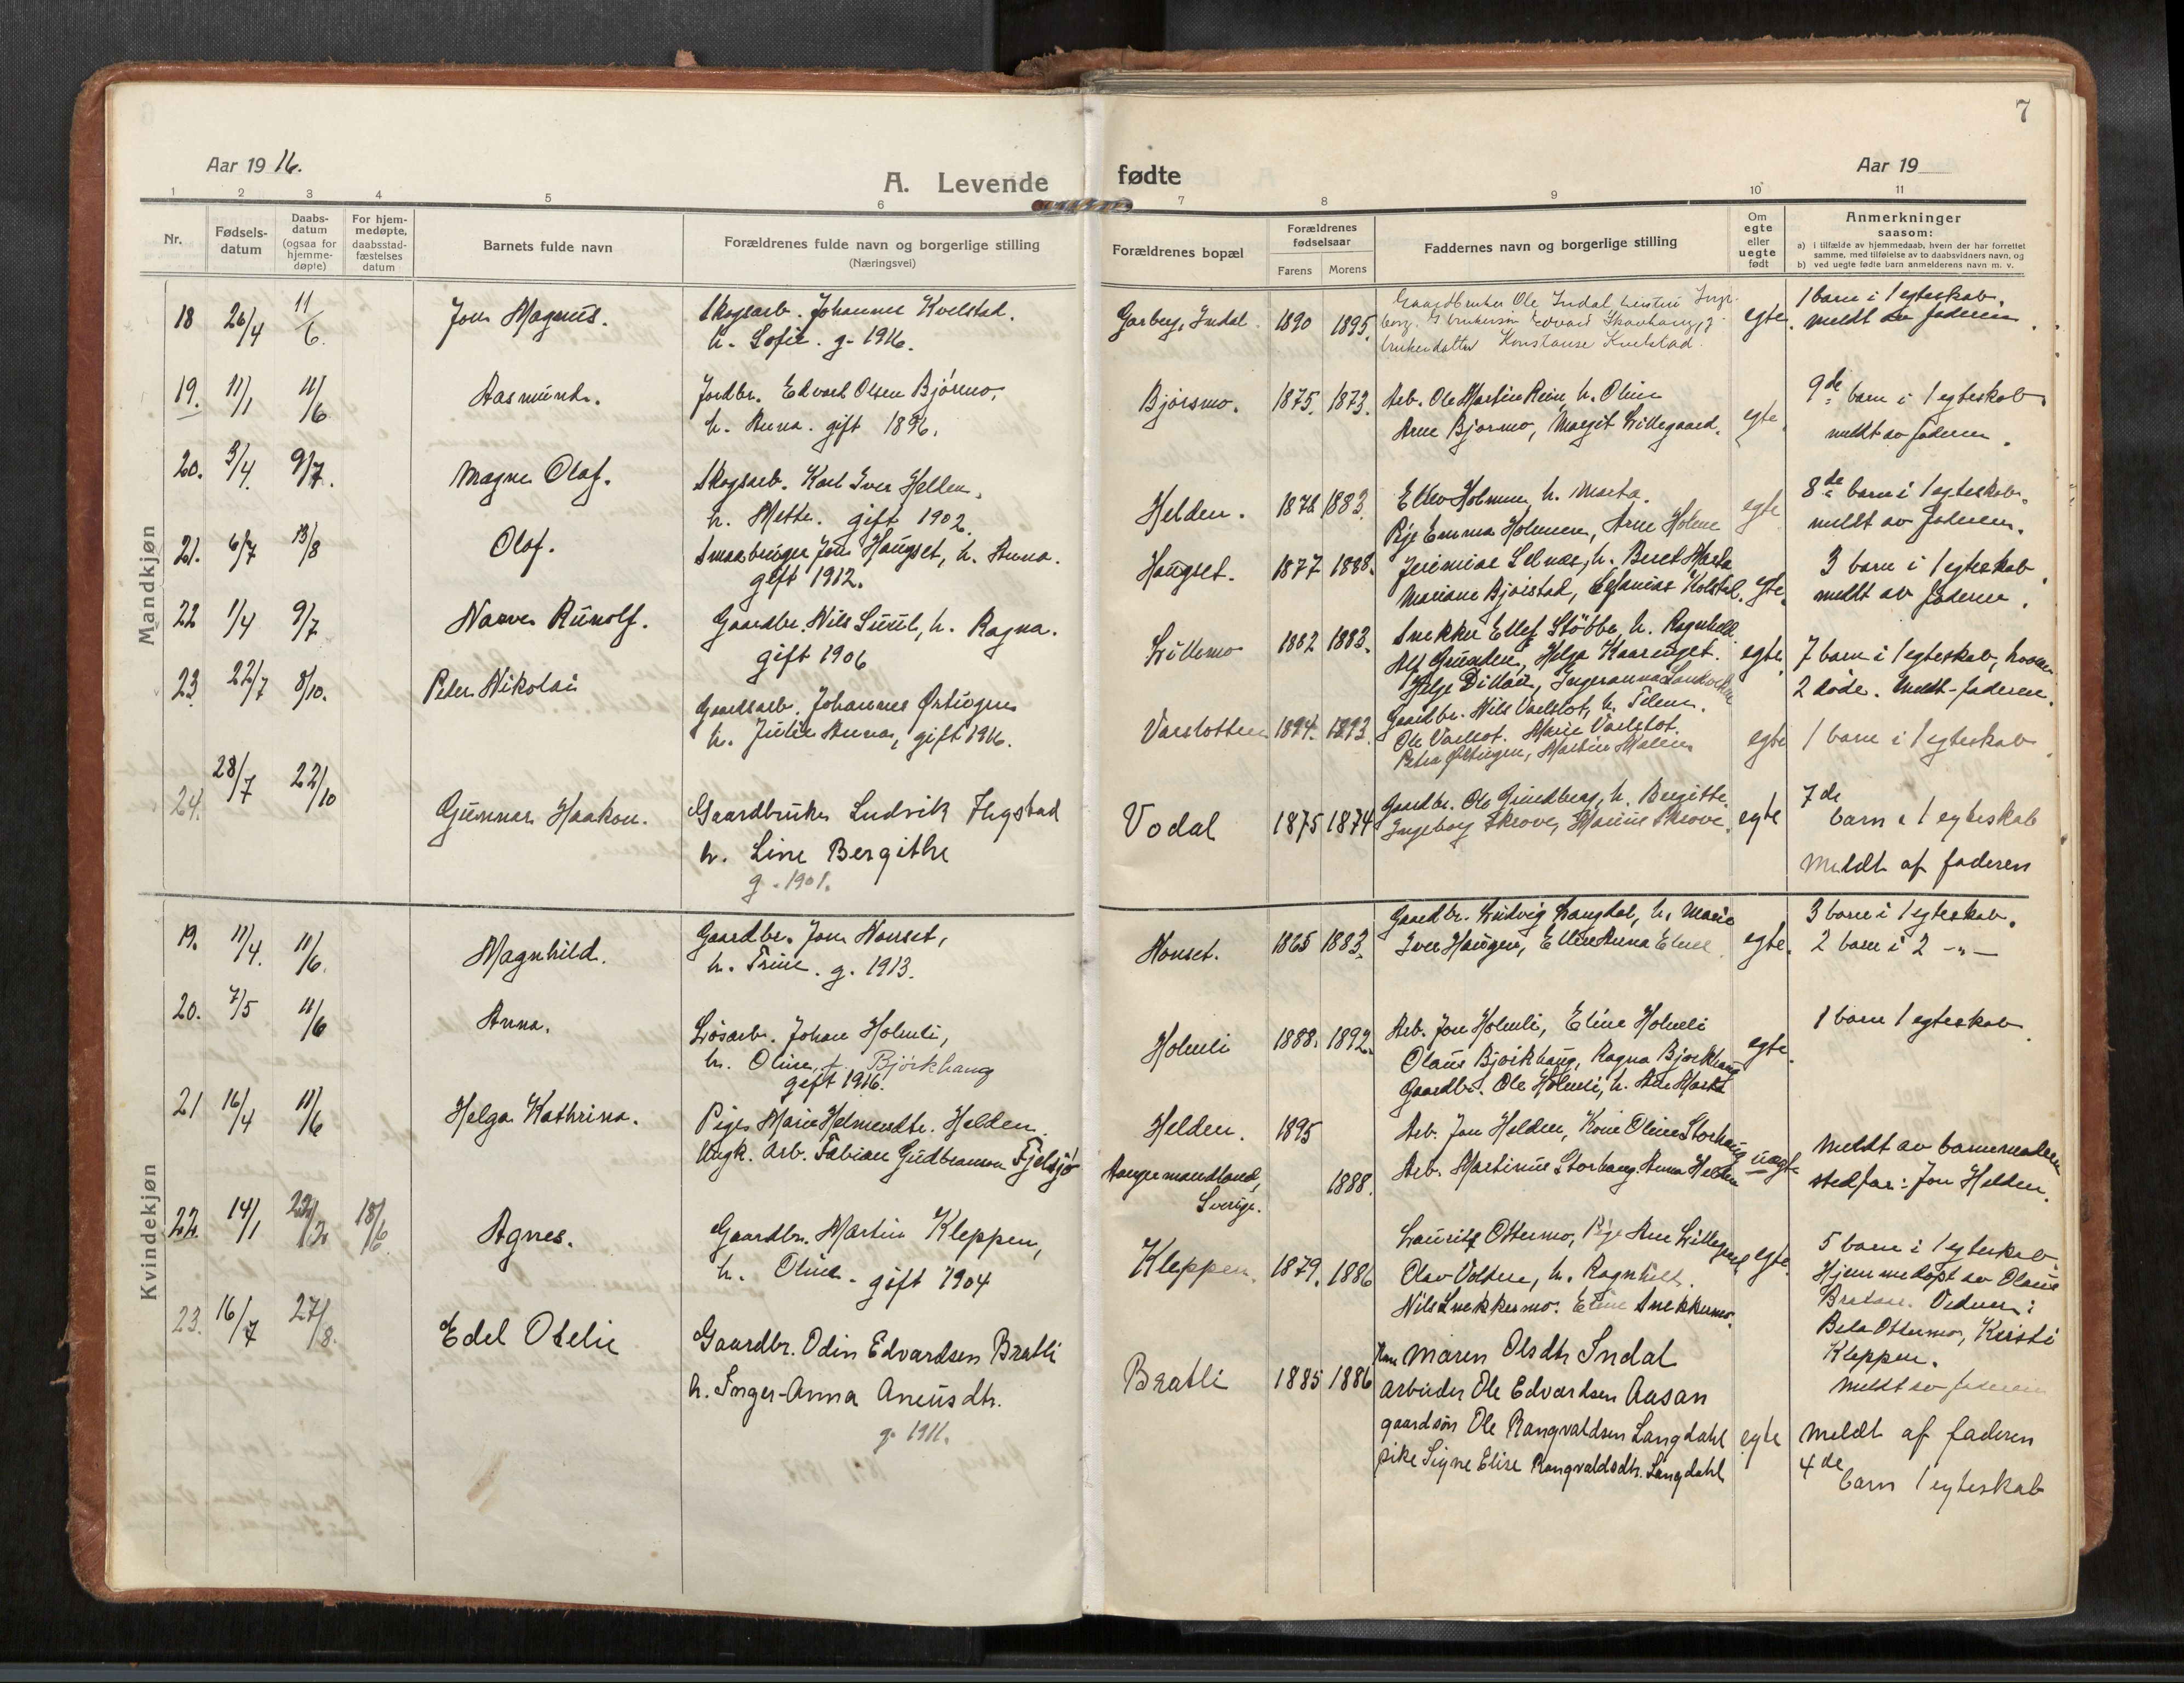 7
Aar 1916.
A. Levende fødte
Aar 19
1 2 3 4 5 6 7 8 9 10 11
Nr.
Fødsels-
datum
Daabs-
datum
(ogsaa for
hjemme-
døpte)
For hjem-
medøpte,
daabsstad-
fæstelses
datum
Barnets fulde navn
Forældrenes fulde navn og borgerlige stilling
(Næringsvei)
Forældrenes bopæl
Forældrenes
fødselsaar
Farens Morens
Faddernes navn og borgerlige stilling
Om
egte
eller
uegte
født
Anmerkninger
saasom:
a) i tilfælde av hjemmedaab, hvem der har forrettet
samme, med tilføielse av to daabsvidners navn, og
b) ved uegte fødte barn anmelderens navn m. v.
Mandkjøn
18 26/4 11/6 Jon Magnus.
Skogsarb. Johannes Kvelstad.
h. Sofie. g. 1916.
Garberg, Indal 1890 1895.
Gaardbruker Ole Indal, hustru Ingeborg
brukerdatter Konstanse Kvelstad.
egte.
1 barn i 1 egteskab.
meldt av faderen
19. 11/1 11/6 Aasmund.
Jordbr. Edvard Olsen Bjørsmo,
h. Anna. gift 1896.
Bjørsmo. 1875. 1873.
Arb. Ole Martin Rein, h. Oline
Arne Bjørsmo, Margit Lillegaard.
egte.
9de barn i 1 egteskab
meldt av faderen.
20. 3/4. 9/7. Magne Olaf.
Skogsarb. Karl Iver Helden,
h. Mette. gift 1902.
Helden. 1872 1883.
Ellev Holmen, h. Marta.
Pige Emma Holmen, Arne Holme
egte
8de barn i 1 egteskab.
meldt av faderen.
21. 6/7 13/8 Olaf.
Smaabruger Jon Haugset, h. Anna.
gift 1912.
Haugset. 1877 1888.
Jeremias Selnæs, h. Beret Marta
Mariane Bjørstad, Kolstad.
egte.
3 barn i 1 egteskab.
meldt av faderen.
22 1/4 9/7 Narve Runolf.
Gaardbr. Nils Suul, h. Ragna.
gift 1906
Lillemo 1882 1883.
Snekker Ellef Støbbe, h. Ragnhild
Helge
egte
7 barn i 1 egteskab, hvorav
2 døde. Meldt - faderen.
23. 22/7 8/10. Peter Nikolai
Gaardsarb. Johannes Østugen
h. Julie Anna, gift 1916.
Varslotten 1894. 1893.
Gaardbr. Nils Varslot, h.
Ole Varslot. Marie Varslot.
Petra Østugen, Martin
egte
1 barn i 1 egteskab.
24. 28/7 22/10 Gunnar Haakon.
Gaardbruker Ludvik Flygstad
h. Line Bergithe
g. 1901.
Vodal 1875 1874
Gaardbr. Ole Grundberg, h. Bergitte.
Ingeborg Skrove, Marius Skrove.
egte
7de
barn i 1 egteskab
Meldt af faderen
Kvindekjøn
19. 11/4. 11/6. Magnhild.
Gaardbr. Jon Honset,
h. Trine. g. 1913.
Honset. 1865 1883.
Gaardbr. Ludvig Langdal, h. Marie
Iver Haugen, Ellen Anna
egte.
3 barn i 1 egteskab.
2 barn i 2 -"-
20. 7/5 11/6 Anna.
Løsarb. Johan Holmli,
h. Oline, f. Bjørkhaug
gift 1916.
Holmli 1888. 1892.
Arb. Jon Holmli, Eline Holmli
Olaus Bjørkhaug, Ragna Bjørkhaug
Gaardbr. Ole Holmli, h. Ane Marta
egte.
1 barn 1 egteskab.
21 16/4 11/6 Helga Kathrina.
Pige Marie Helmersdtr. Helden.
Ungk. Arb. Fabian Gudbransen Fjelsjø
Helden. 1895
Angermandland, 1888.
Sverige.
Arb. Jon Helden, Kone Oline Storhaug
Arb. Martinus Storhaug, Anna Helden
uegte
Meldt av barnemoderens
stedfar: Jon Helden.
22. 14/1 22/2 18/6. Agnes.
Gaardbr. Martin Kleppen,
h. Oline. gift 1904
Kleppen. 1879. 1886
Laurits Ottermo, Pige Ane Lillegaard
Olav Volden, h. Ragnhild.
Nils Snekkermo. Eline Snekkermo.
egte.
5 barn i 1 egteskab.
Hjemmedøpt av Olaus
Vidner:
Ottermo, Kirsti
Kleppen.
Meldt av faderen
23. 16/7 27/8. Edel Otelie
Gaardbr. Odin Edvardsen Bratli
h. Inger-Anna Aneusdtr.
g. 1911.
Bratli 1885 1886
Maren Olsdtr Indal
arbeider Ole Edvardsen Aasan
gaardsøn Ole Rangvaldsen Langdahl
pike Signe Elise Rangvaldsdtr. Langdahl
egte
Meldt af faderen
4de
barn 1 egteskab